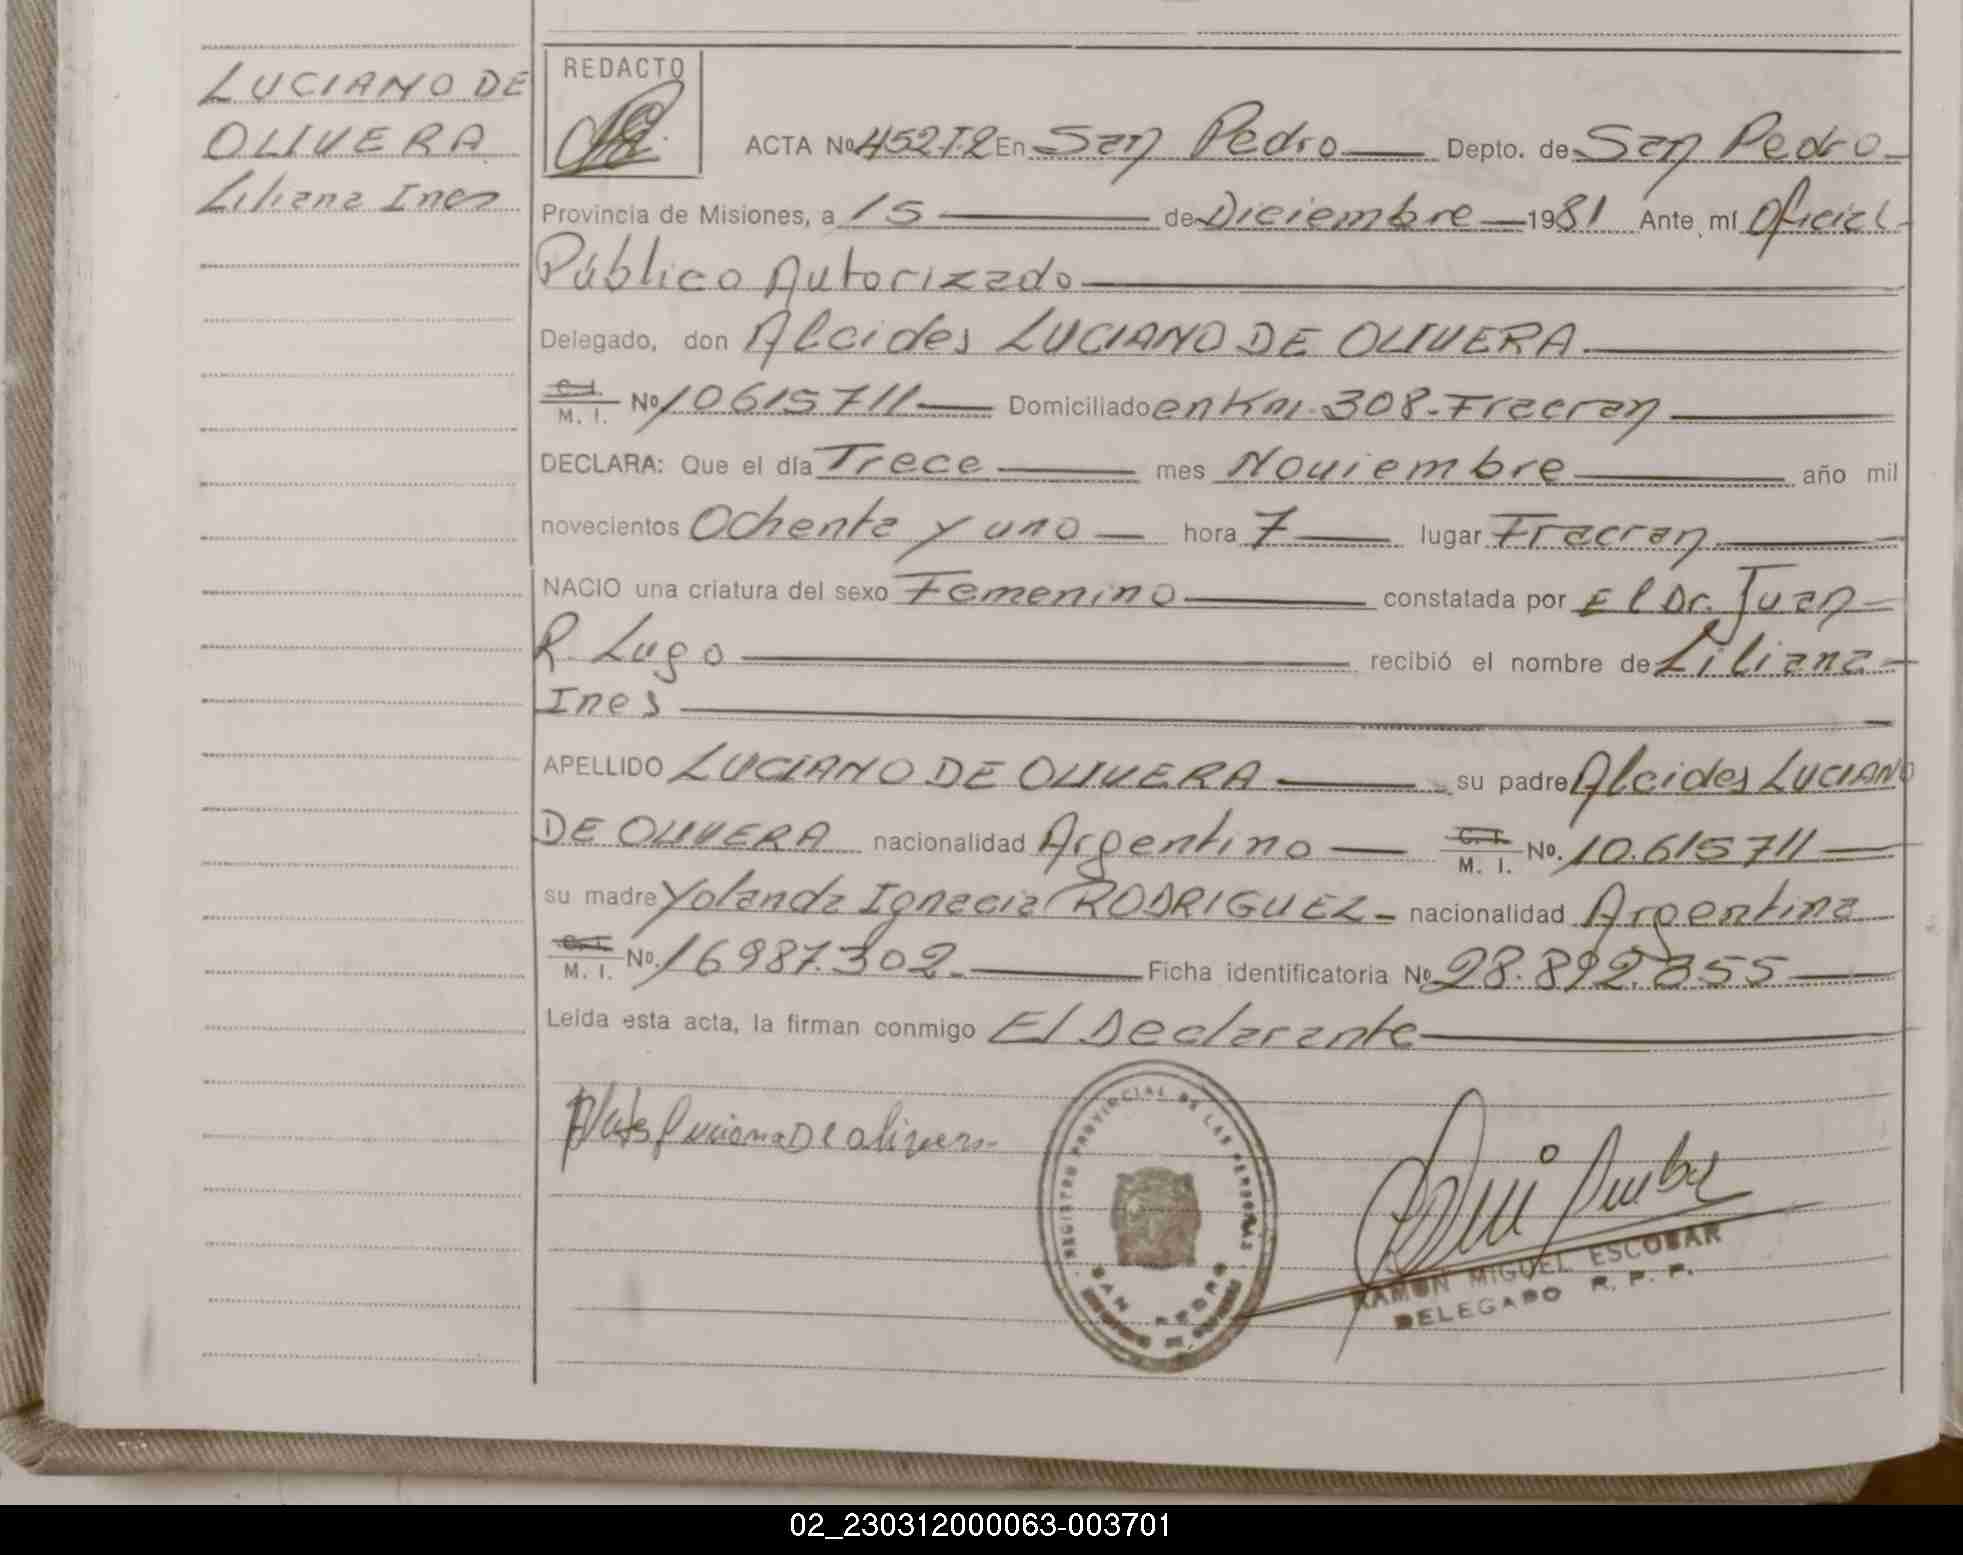 LUCIANO DE
OLIVERA
Liliana Ines
REDACTO
ACTA Nº 452T.2 En San Pedro Depto. de San Pedro
Provincia de Misiones, a 15 de Diciembre 1981 Ante mí Oficial
Público Autorizado
Delegado, don Alcides LUCIANO DE OLIVERA
C.I.
M. I. Nº 10615711 Domiciliado en Km. 308-Fracran
DECLARA: Que el día Trece mes Noviembre año mil
novecientos Ochenta y uno hora 7 lugar Fracran
NACIO una criatura del sexo Femenino constatada por El Dr. Juan
R. Lugo recibió el nombre de Liliana
Ines
APELLIDO LUCIANO DE OLIVERA su padre Alcides LUCIANO
DE OLIVERA nacionalidad Argentino C. I. M. I. Nº. 10.615711
su madre Yolanda Ignacia RODRIGUEZ nacionalidad Argentina
C. I. M. I. Nº. 16987.302 Ficha identificatoria Nº 28.892.355
Leída esta acta, la firman conmigo El Declarante
Luciano De olivera
REGISTRO PROVINCIAL DE LAS PERSONAS
SAN PEDRO
RAMON MIGUEL ESCOBAR
DELEGADO R. P. P.
02_230312000063-003701